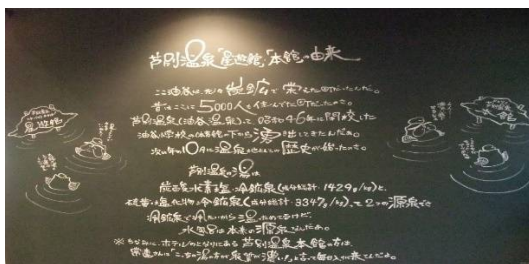 芦別温泉「星遊館」「本館」の由来
ここ油谷は、元々炭鉱で栄えた町だったんだ。
昔はここに5000人も住んでた町だったのさ。
芦別温泉(油谷温泉)って昭和46年に閉校した
油谷小学校の体育館の下から湧出してきたんだね。
次の年の10月に温泉としての歴史が始ったのさ。
芦別温泉の湯は
含芒硝重曹塩冷鉱泉(成分総計:1429g/kg)と、
硫黄塩化物冷鉱泉(成分総計:8347g/kg)、って2つの源泉でさ
冷鉱泉で冷たいから温ためてるけど、
水風呂は本来の源泉なんだね。
※ちなみに、ホテルのとなりにある芦別温泉本館の方は、
常連さんに「こっちの湯の方が泉質が濃い!」と言って毎日入りに来てんだよ。
星遊館